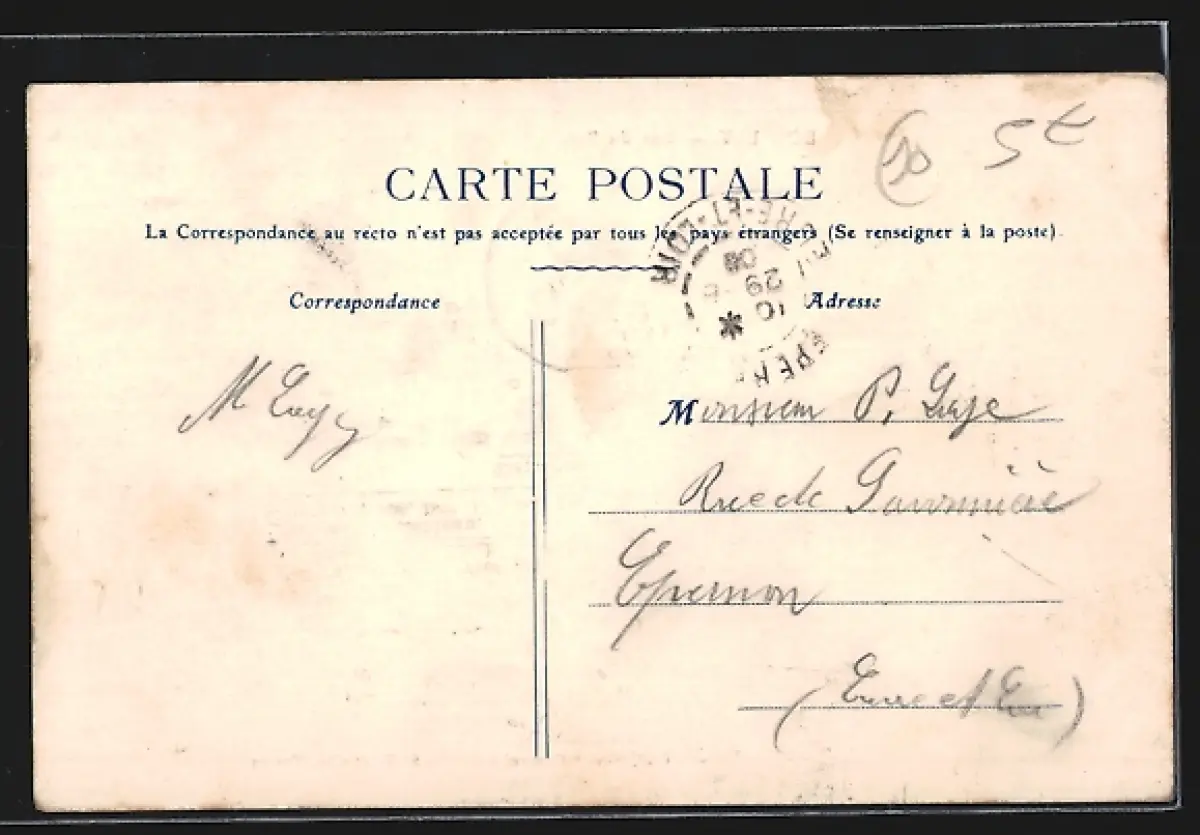 10 5€
CARTE POSTALE
La Correspondance au recto n'est pas acceptée par tous les pays étrangers (Se renseigner à la poste).
EURE-ET-LOIR
10
29
08
EPERN
Correspondance
Adresse
M
Monsieur P.
Rue de
Epernon
(Eure et